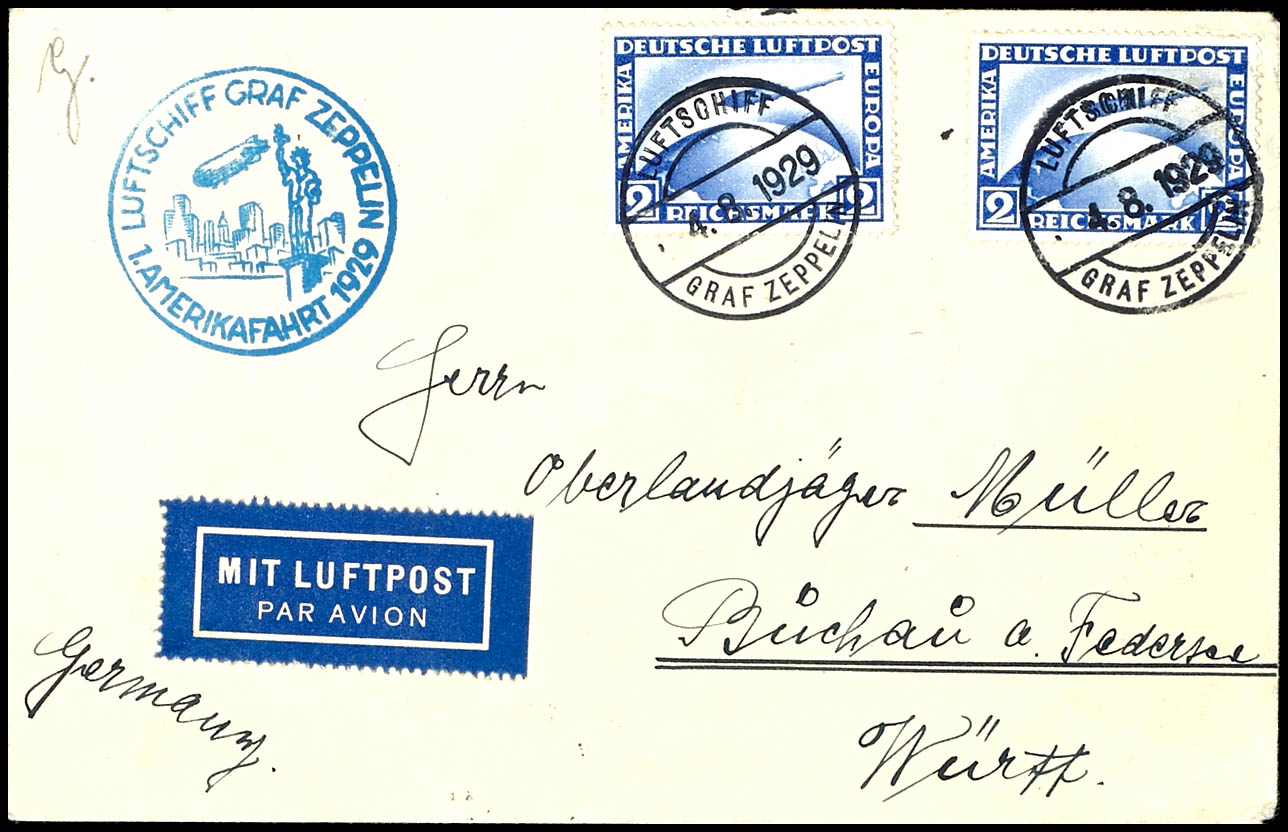 LUFTSCHIFF GRAF ZEPPELIN
1. AMERIKAFAHRT 1929
DEUTSCHE LUFTPOST
AMERIKA
EUROPA
2 REICHSMARK 2
LUFTSCHIFF
4.8.1929
GRAF ZEPPELIN
DEUTSCHE LUFTPOST
AMERIKA
EUROPA
2 REICHSMARK 2
LUFTSCHIFF
4.8.1929
GRAF ZEPPELIN
Herrn
Oberlandjäger Müller
Buchau a. Federsee
Württ.
MIT LUFTPOST
PAR AVION
Germany.